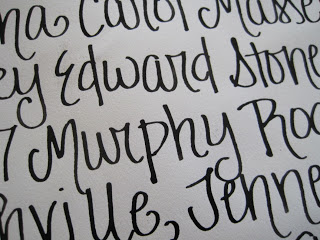 na Carol Masse
ey Edward Stone
7 Murphy Roa
hville, Jenne